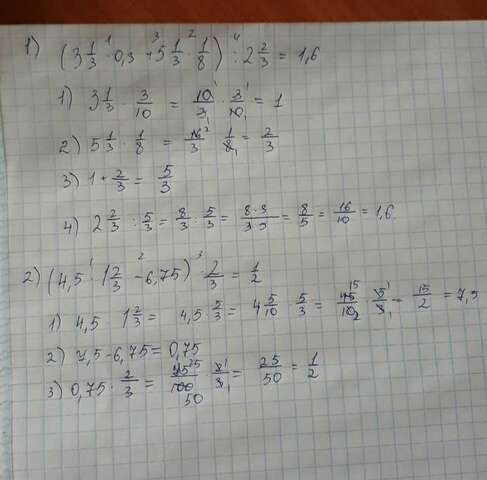 1) (3 1/3 · 0,3 + 5 1/3 · 1/8) : 2 2/3 = 1,6
1) 3 1/3 · 3/10 = 10/3 · 3/10 = 1
2) 5 1/3 · 1/8 = 16/3 · 1/8 = 2/3
3) 1 + 2/3 = 5/3
4) 2 2/3 : 5/3 = 8/3 · 5/3 = 8·3/3·5 = 8/5 = 16/10 = 1,6
2) (4,5 · 1 2/3 - 6,75) · 2/3 = 1/2
1) 4,5 · 1 2/3 = 4,5 · 5/3 = 4 5/10 · 5/3 = 45/10 · 5/3 = 15/2 = 7,5
2) 7,5 - 6,75 = 0,75
3) 0,75 · 2/3 = 75/100 · 2/3 = 25/50 = 1/2